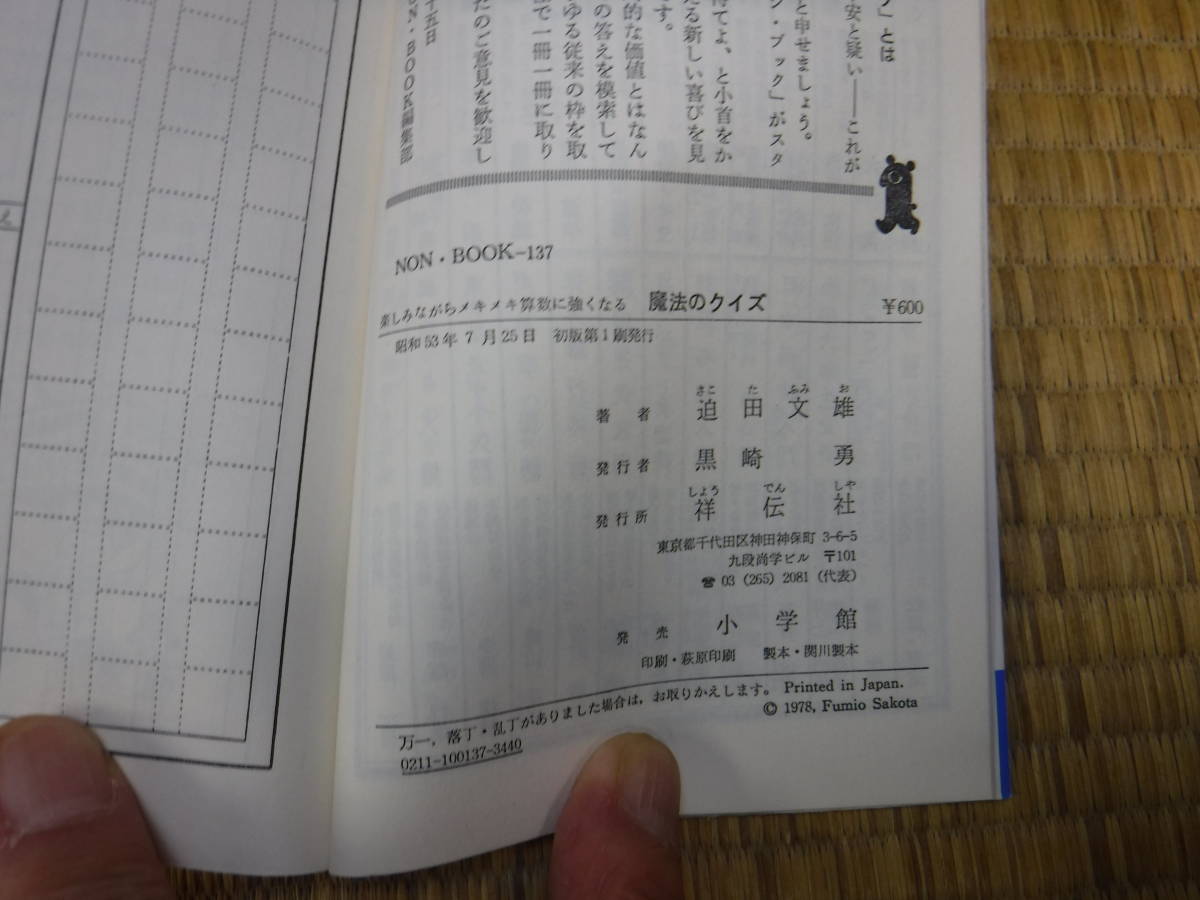 」とは
安と疑い――これが
と申せましょう。
ン・ブック」がスタ
待てよ、と小首をか
る新しい喜びを見
す。
的な価値とはなん
の答えを模索して
ゆる従来の枠を取
で一冊一冊に取り
たのご意見を歓迎し
十五日
ON・BOOK編集部
NON・BOOK-137
楽しみながらメキメキ算数に強くなる 魔法のクイズ ¥600
昭和53年7月25日 初版第1刷発行
さこ た ふみ お
著者 迫田文雄
発行者 黒崎勇
しょう でん しゃ
発行所 祥伝社
東京都千代田区神田神保町 3-6-5
九段尚学ビル 〒101
☎ 03 (265) 2081 (代表)
発売 小学館
印刷・萩原印刷 製本・関川製本
万一,落丁・乱丁がありました場合は,お取りかえします。 Printed in Japan.
0211-100137-3440 © 1978, Fumio Sakota